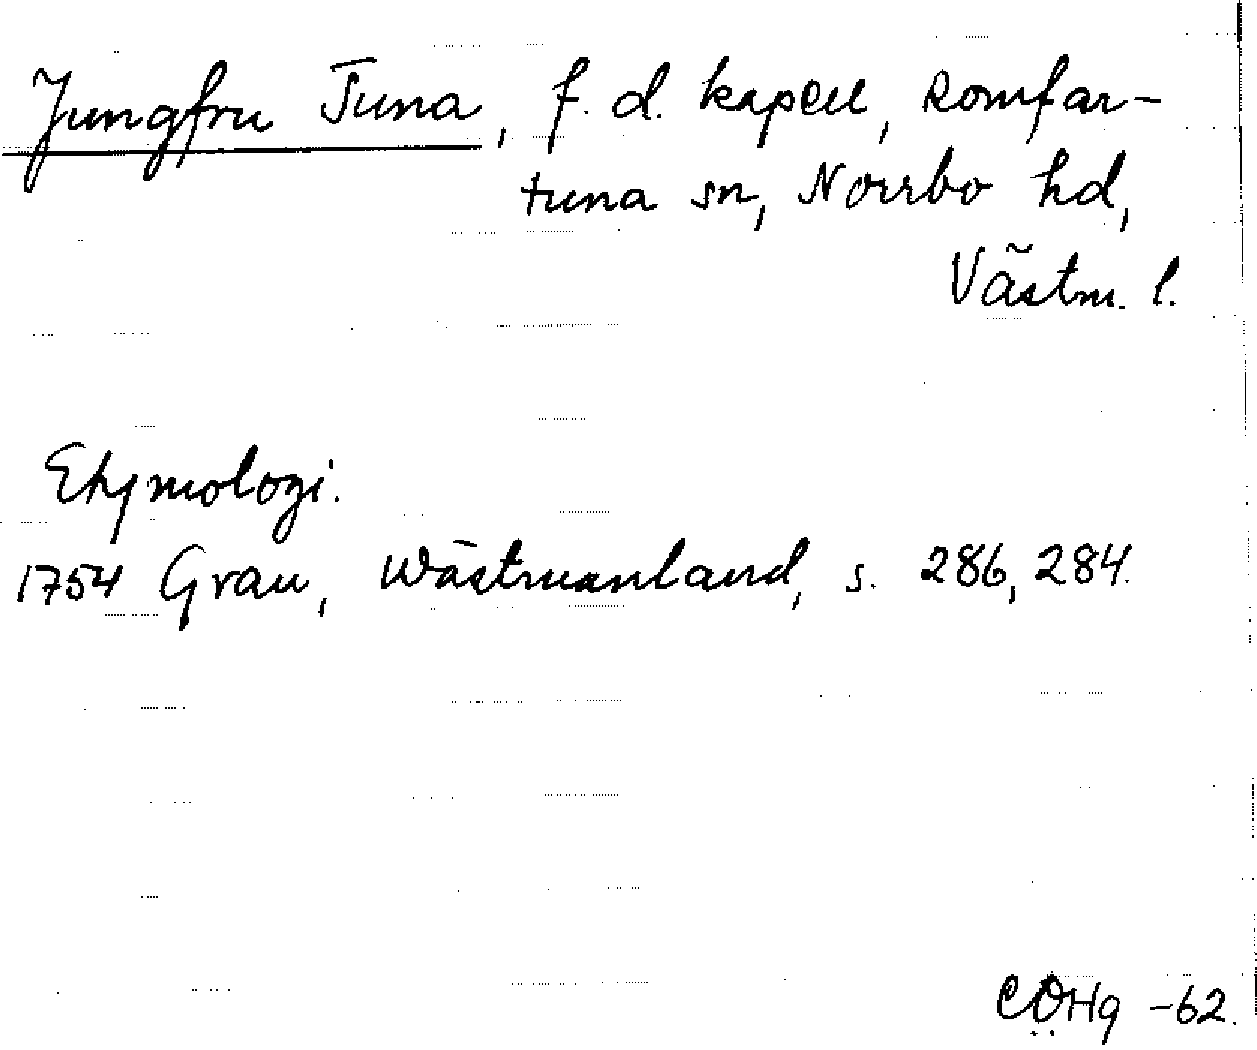 Jungfru Tuna, f. d. kapell, Romfar-
tuna sn, Norrbo hd,
Västm. l.
Etymologi.
1754 Grau, Wästmanland, s. 286, 284.
CÖHg -62.